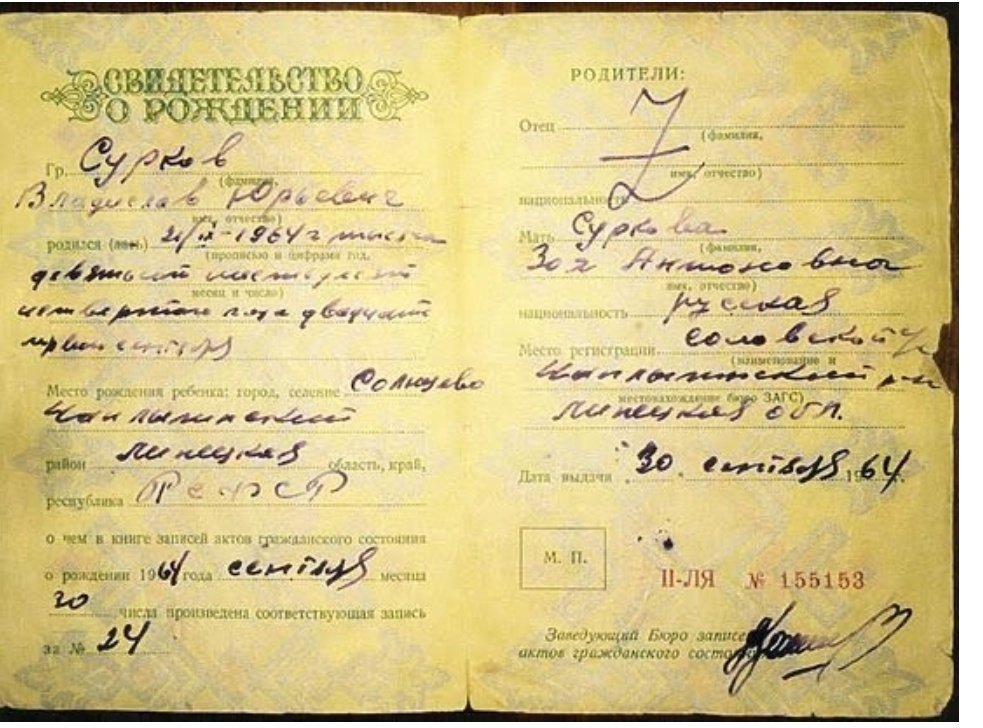 СВИДЕТЕЛЬСТВО
О РОЖДЕНИИ
Гр. Сурков
(фамилия,
Владислав Юрьевич
имя, отчество)
родился (лась) 21/IX-1964 г тысяча
(прописью и цифрами год,
девятьсот шестьдесят
месяц и число)
четвертого года двадцать
первого сентября
Место рождения ребенка: город, селение Солнцево
Чаплыгинский
район Липецкая область, край,
республика РСФСР
о чем в книге записей актов гражданского состояния
о рождении 1964 года сентября месяца
30 числа произведена соответствующая запись
за № 24
РОДИТЕЛИ:
Отец
(фамилия,
имя, отчество)
национальность
Мать Суркова
(фамилия,
Зоя Антоновна
имя, отчество)
национальность русская
Место регистрации
(наименование и
Чаплыгинский
местонахождение бюро ЗАГС)
Липецкая обл.
Дата выдачи "30" сентября 1964 г.
М. П.
II-ЛЯ № 155153
Заведующий Бюро записей
актов гражданского состояния